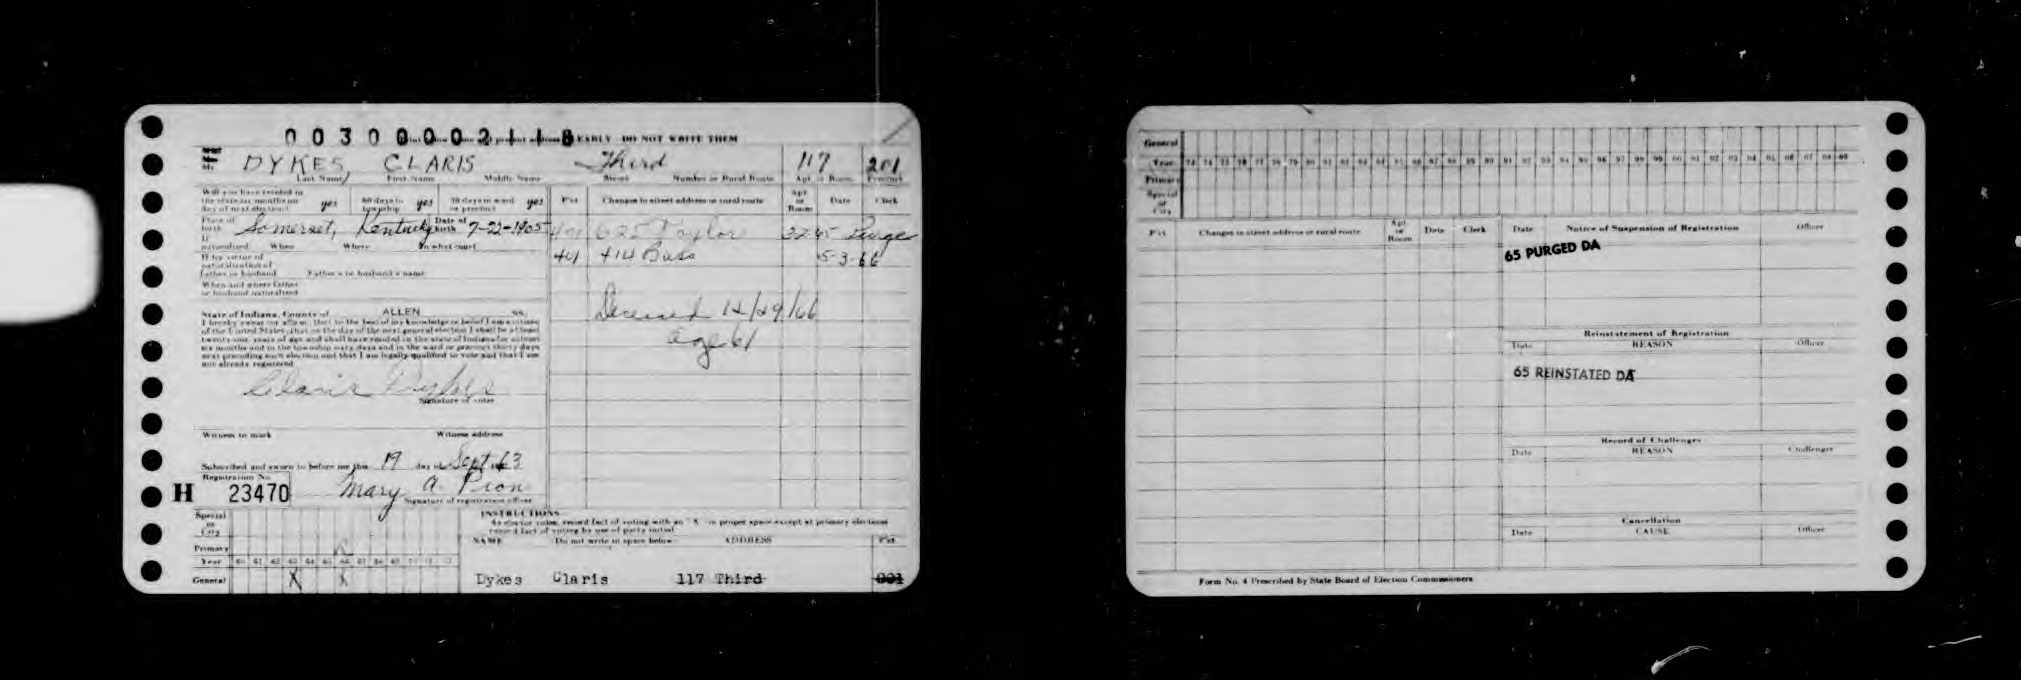 0030000211 EARLY DO NOT WRITE THEM
Mr. DYKES, CLARIS Third 117 201
Last Name First Name Middle Name Street Number or Rural Route Apt or Room Precinct
Will you have resided in the state six months on day of next election? yes 60 days in township yes 30 days in ward or precinct yes
Pct Changes to street address or rural route Apt or Room Date Clerk
Place of birth Somerset, Kentucky Date of birth 7-22-1905
625 Taylor Purge
If naturalized When Where In what court
401 414 Bass 5-3-66
If by virtue of naturalization of father or husband Father's or husband's name
When and where father or husband naturalized
Deceased 12/29/66
age 61
State of Indiana, County of ALLEN ss:
I hereby swear (or affirm) that to the best of my knowledge or belief I am a citizen
of the United States, that on the day of the next general election I shall be at least
twenty one years of age and shall have resided in the state of Indiana for at least
six months and in the township sixty days and in the ward or precinct thirty days
next preceding such election and that I am legally qualified to vote and that I am
not already registered
Claris Dykes
Signature of voter
Witness to mark Witness address
Subscribed and sworn to before me this 19 day of Sept 63
Registration No. Mary A. Pion
H 23470 Signature of registration officer
INSTRUCTIONS
As elector votes, record fact of voting with an "X" in proper space except at primary elections
record fact of voting by use of party initial
Special or City
Primary R
Year 60 61 62 63 64 65 66 67 68 69 70 71 72
General X X
NAME Do not write in space below ADDRESS Pct
Dykes Claris 117 Third
General
Year 73 74 75 76 77 78 79 80 81 82 83 84 85 86 87 88 89 90 91 92 93 94 95 96 97 98 99 00 01 02 03 04 05 06 07 08 09
Primary
Special or City
Pct Changes to street address or rural route Apt or Room Date Clerk
Date Notice of Suspension of Registration Officer
65 PURGED DA
Reinstatement of Registration
Date REASON Officer
65 REINSTATED DA
Record of Challenges
Date REASON Challenger
Cancellation
Date CAUSE Officer
Form No. 4 Prescribed by State Board of Election Commissioners